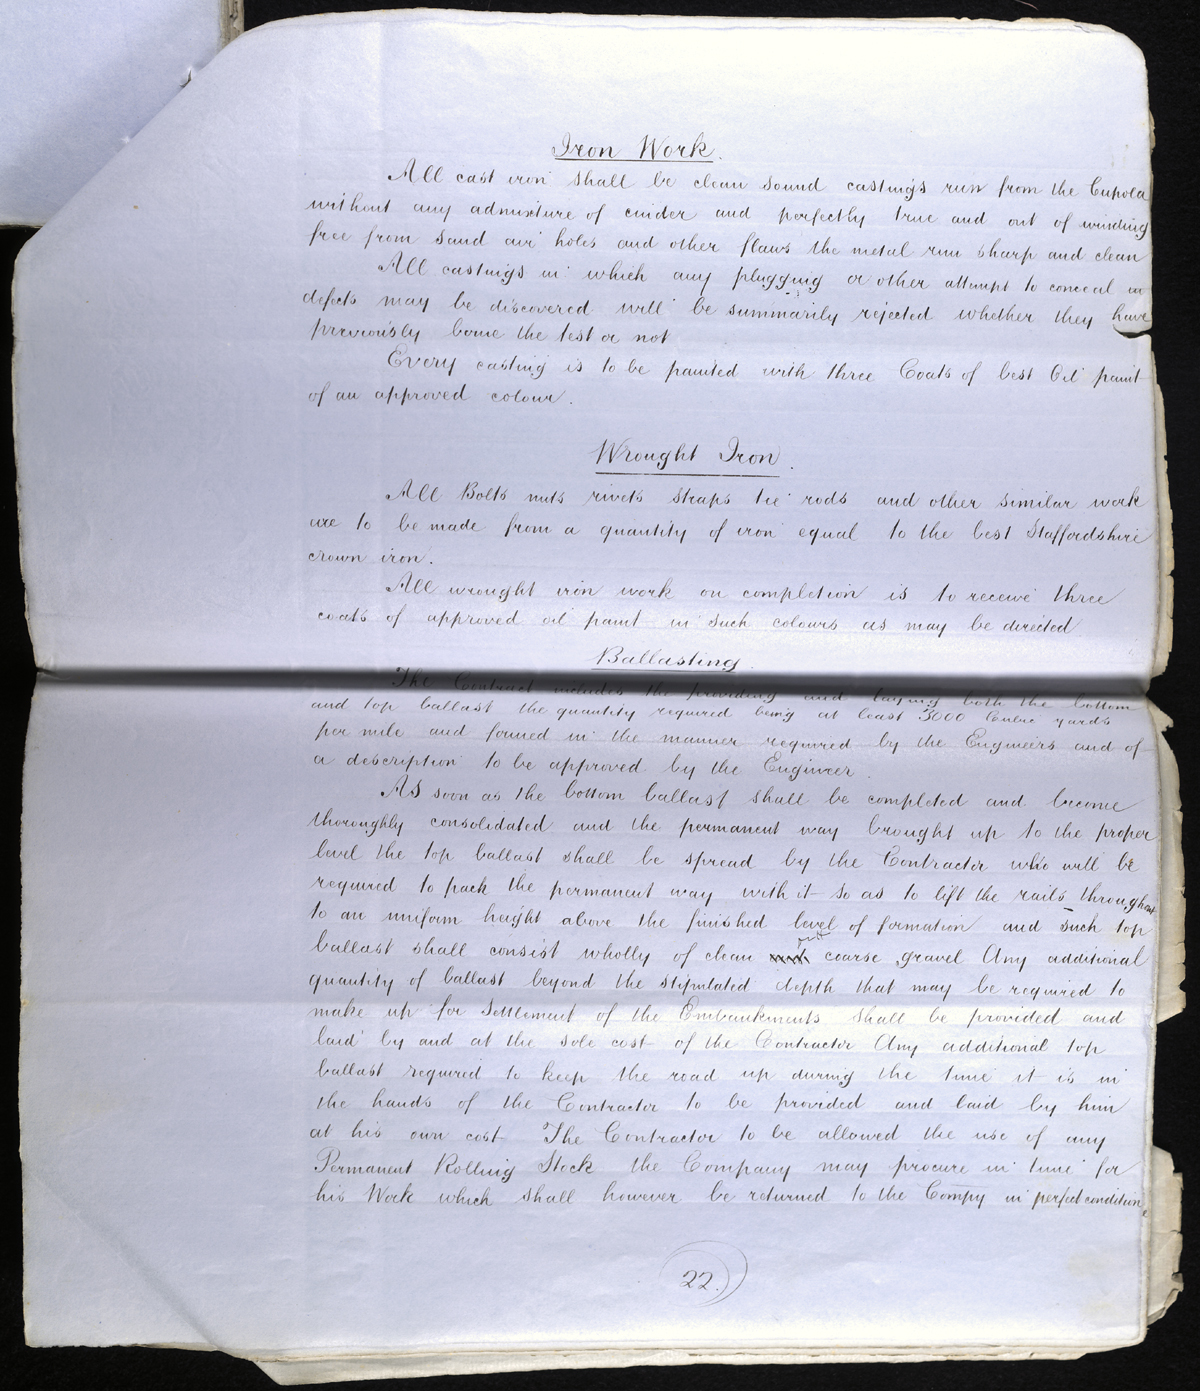 Iron Work.
All cast iron shall be clean sound castings run from the Cupola
without any admixture of cinder and perfectly true and out of winding
free from sand air holes and other flaws the metal run sharp and clean
All castings in which any plugging or other attempt to conceal
defects may be discovered will be summarily rejected whether they have
previously borne the test or not
Every casting is to be painted with three Coats of best Oil paint
of an approved colour.
Wrought Iron.
All Bolts nuts rivets straps tie rods and other similar work
are to be made from a quantity of iron equal to the best Staffordshire
crown iron.
All wrought iron work on completion is to receive three
coats of approved oil paint in such colours as may be directed
Ballasting.
The Contract includes the providing and laying both the bottom
and top ballast the quantity required being at least 3000 Cubic yards
per mile and formed in the manner required by the Engineers and of
a description to be approved by the Engineer.
As soon as the bottom ballast shall be completed and become
thoroughly consolidated and the permanent way brought up to the proper
level the top ballast shall be spread by the Contractor who will be
required to pack the permanent way with it so as to lift the rails throughout
to an uniform height above the finished level of formation and such top
ballast shall consist wholly of clean coarse gravel Any additional
quantity of ballast beyond the stipulated depth that may be required to
make up for settlement of the Embankments shall be provided and
laid by and at the sole cost of the Contractor Any additional top
ballast required to keep the road up during the time it is in
the hands of the Contractor to be provided and laid by him
at his own cost The Contractor to be allowed the use of any
Permanent Rolling Stock the Company may procure in time for
his Work which shall however be returned to the Compy in perfect condition
22.